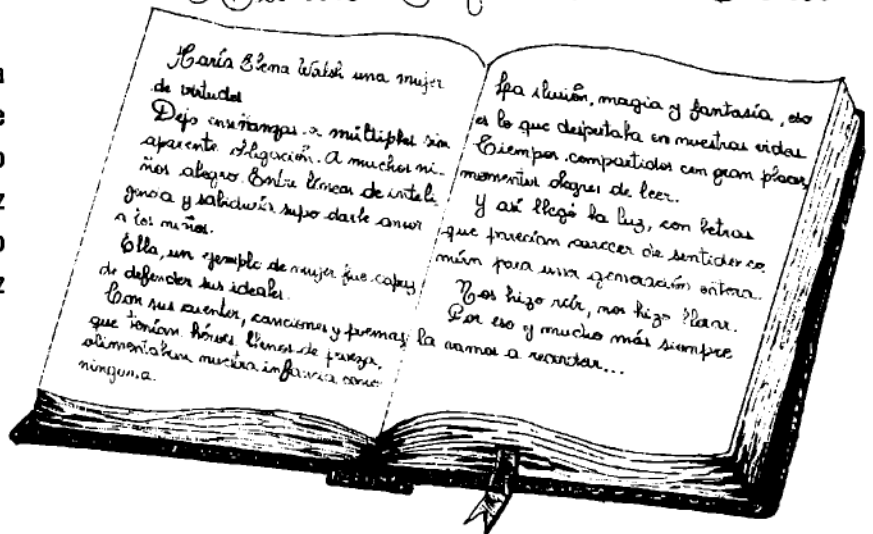 María Elena Walsh una mujer
de virtudes
Dejo enseñanzas a múltiples sin
aparente obligación. A muchos ni-
ños alegro. Entre líneas de inteli-
gencia y sabiduría supo darle amor
a los niños.
Ella, un ejemplo de mujer fue capaz
de defender sus ideales.
Con sus cuentos, canciones y poemas,
que tenían héroes llenos de pureza,
alimentaban nuestra infancia como
ninguna.
La ilusión, magia y fantasía, eso
es lo que despertaba en nuestras vidas
Tiempos compartidos con gran placer,
momentos alegres de leer.
Y así llegó la luz, con letras
que parecían carecer de sentido co
mún para una generación entera.
Nos hizo reír, nos hizo llorar.
Por eso y mucho más siempre
la vamos a recordar...